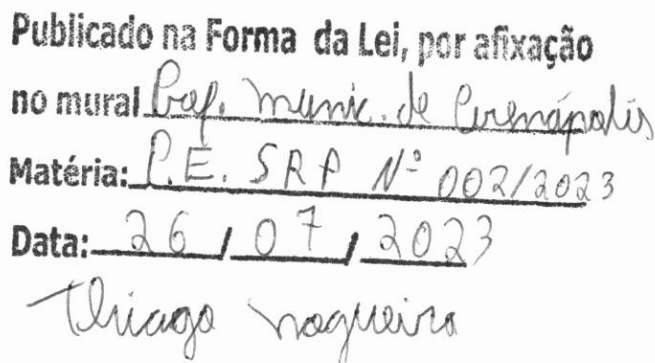 Publicado na Forma da Lei, por afixação
no mural Pref. Munic. de Pirenópolis
Matéria: P.E. SRP Nº 002/2023
Data: 26 / 07 / 2023
Thiago Nogueira